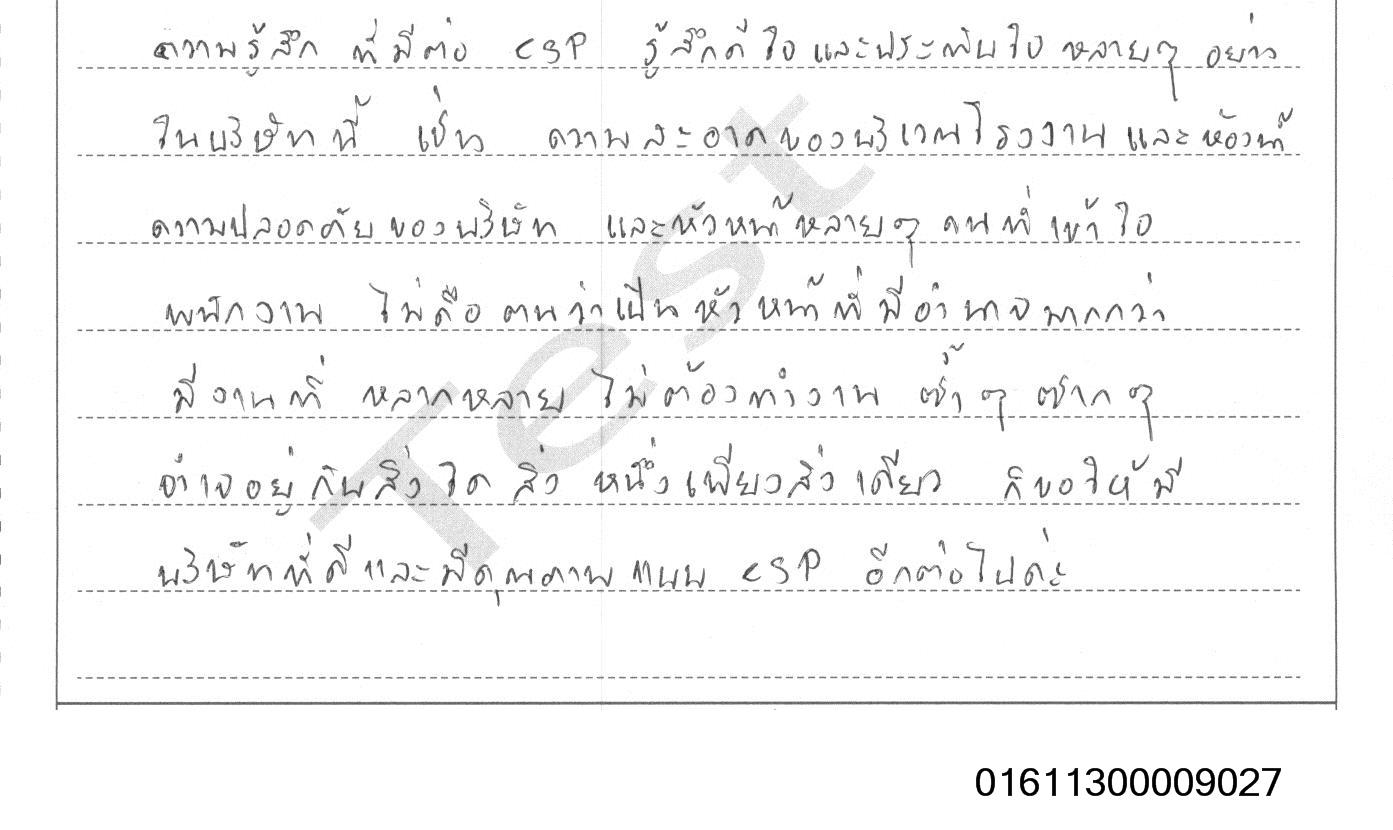 ความรู้สึก ที่มีต่อ CSP รู้สึกดีใจและประทับใจ หลายๆ อย่าง
ในบริษัทนี้ เช่น ความสะอาดของบริเวณโรงงานและห้องน้ำ
ความปลอดภัยของบริษัท และหัวหน้าหลายๆ คนที่เข้าใจ
พนักงาน ไม่ถือตนว่าเป็นหัวหน้าที่มีอำนาจมากกว่า
มีงานที่ หลากหลาย ไม่ต้องทำงาน ซ้ำๆ ซากๆ
จำเจอยู่กับสิ่งใด สิ่ง หนึ่งเพียงสิ่งเดียว ก็ขอให้มี
บริษัทที่ดีและมีคุณภาพแบบ CSP อีกต่อไปค่ะ
Test
01611300009027